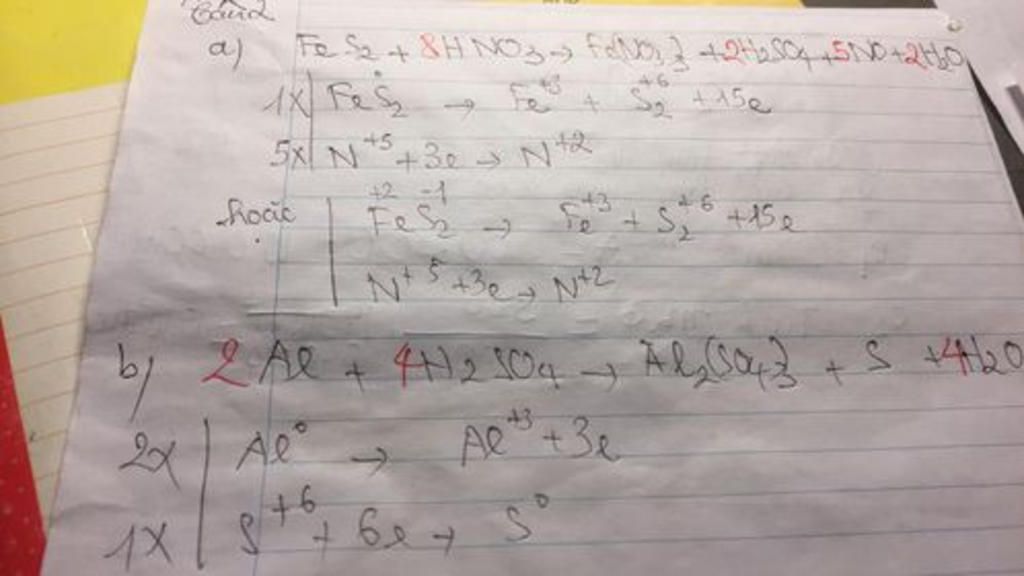 Bài 2
a) FeS2 + 8HNO3 → Fe(NO3)3 + 2H2SO4 + 5NO + 2H2O
1x FeS2 → Fe+3 + S2+6 + 15e
5x N+5 + 3e → N+2
hoặc +2 -1
FeS2 → Fe+3 + S2+6 + 15e
N+5 + 3e → N+2
b) 2Al + 4H2SO4 → Al2(SO4)3 + S + 4H2O
2x Al0 → Al+3 + 3e
1x S+6 + 6e → S0